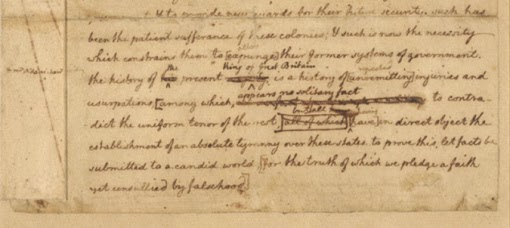 & to provide new guards for their future security. such has
been the patient sufferance of these colonies; & such is now the necessity
which constrains them to [expunge] their former systems of government.
the history of the present King of Great Britain is a history of [unremitting] injuries and
usurpations, [among which, appears no solitary fact to contra-
dict the uniform tenor of the rest, all of which] [have] in direct object the
establishment of an absolute tyranny over these states. to prove this, let facts be
submitted to a candid world [for the truth of which we pledge a faith
yet unsullied by falsehood]